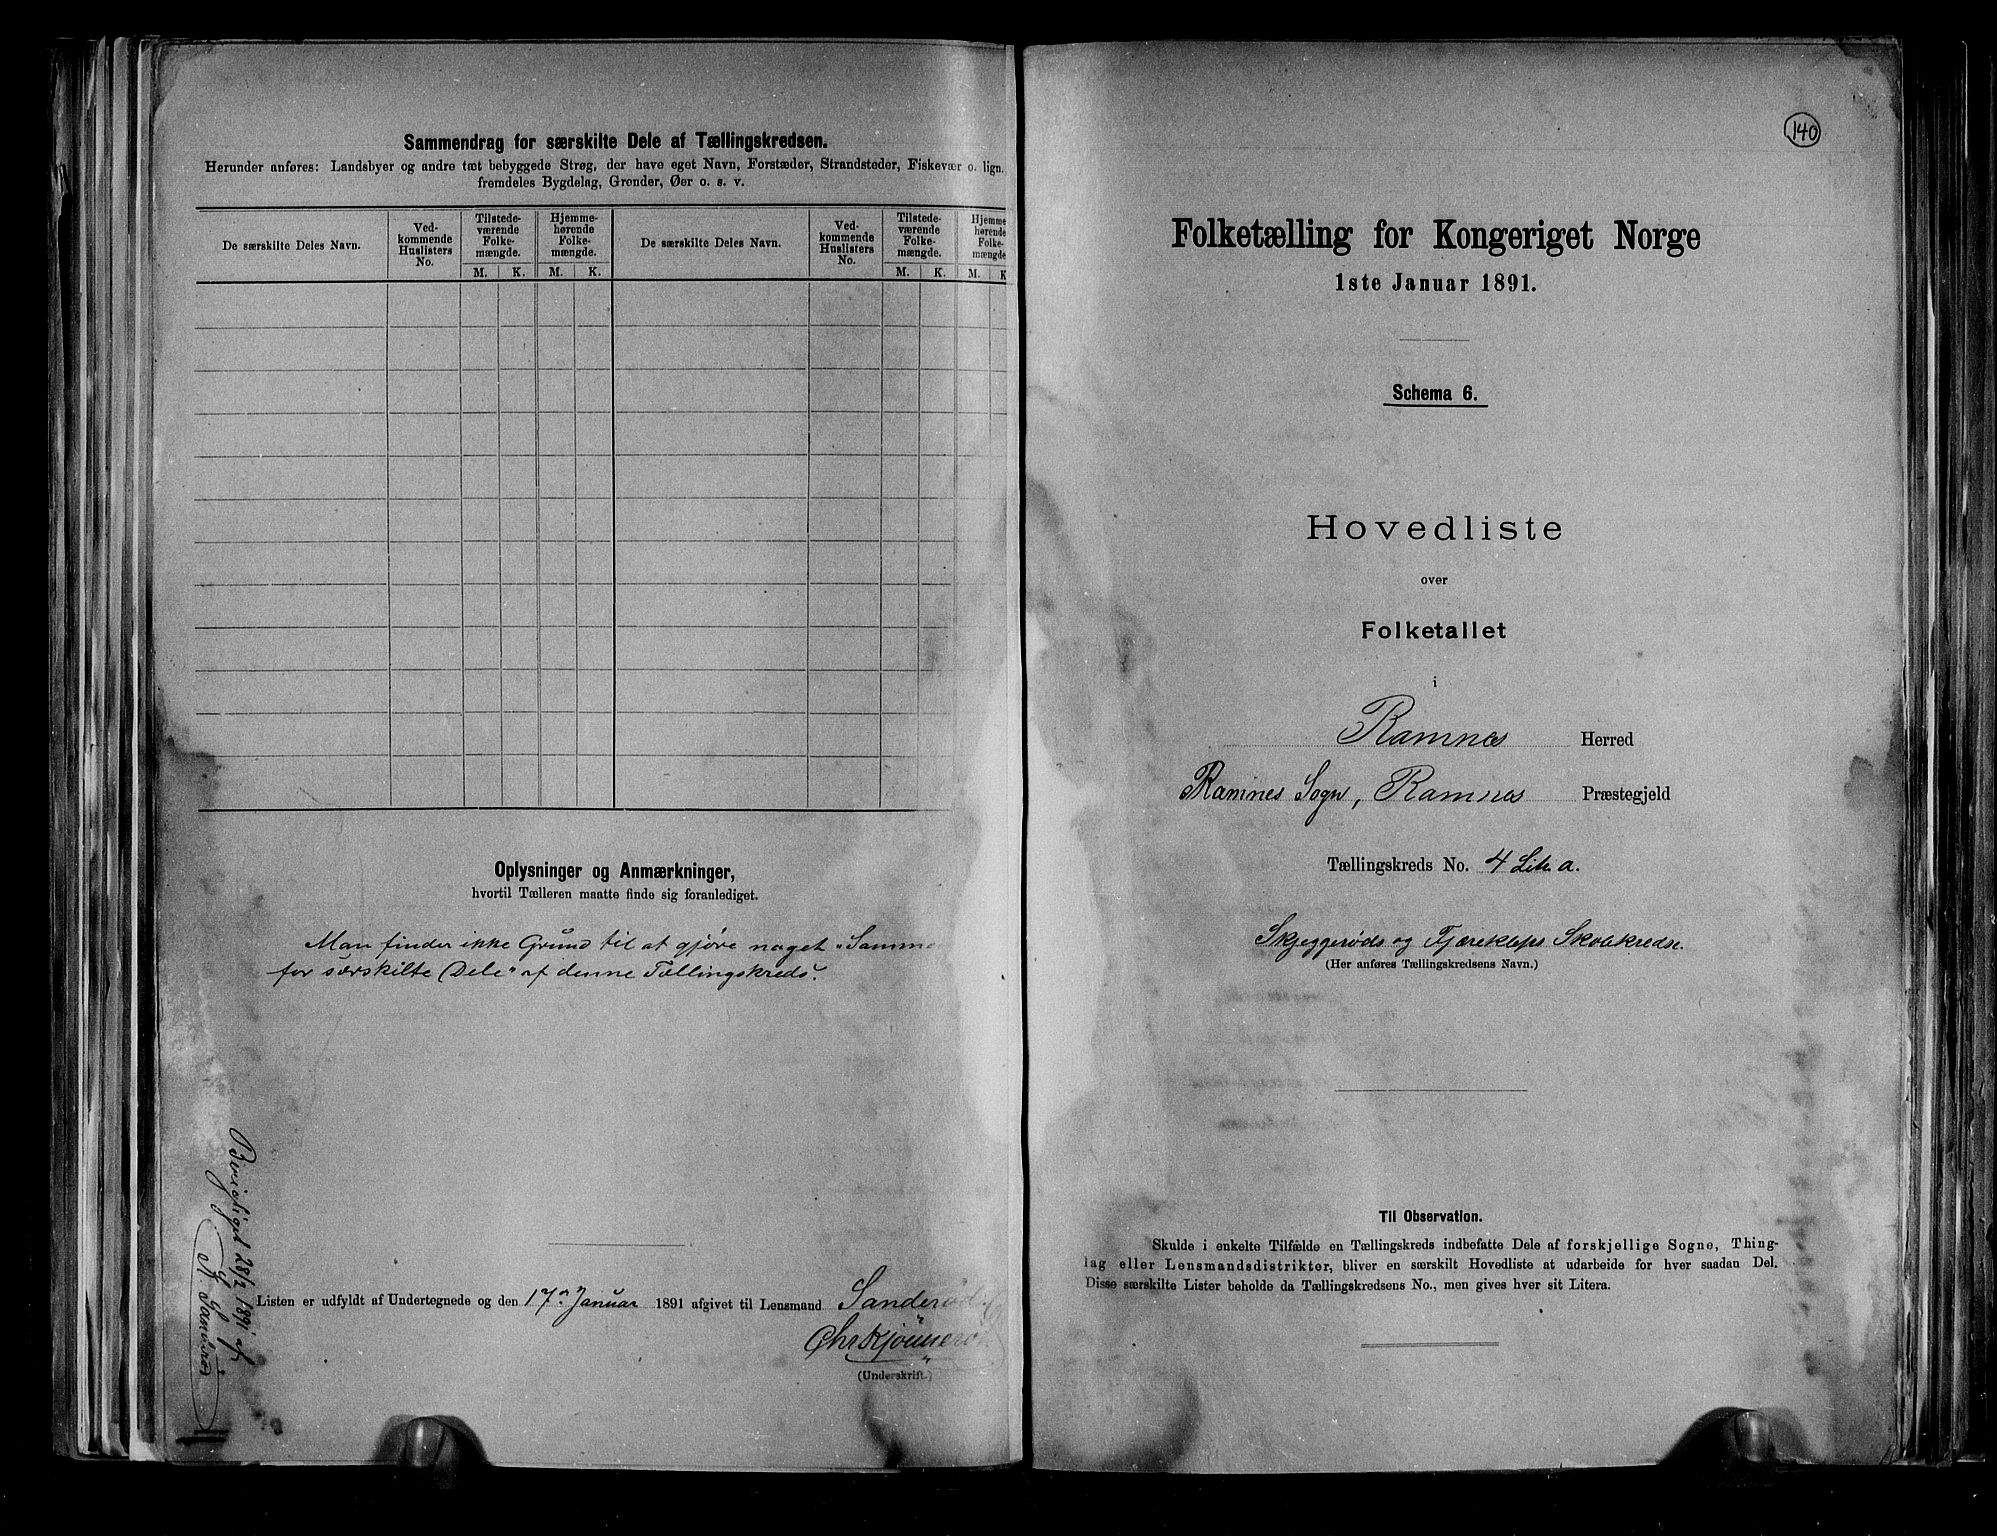 Sammendrag for særskilte Dele af Tællingskredsen.
Herunder anføres: Landsbyer og andre tæt bebyggede Strøg, der have eget Navn, Forstæder, Strandsteder, Fiskevær o. lign.
fremdeles Bygdelag, Grender, Øer o. s. v.
De særskilte Deles Navn.
Ved-
kommende
Huslisters
No.
Tilstede-
værende
Folke-
mængde.
M. K.
Hjemme-
hørende
Folke-
mængde.
M. K.
De særskilte Deles Navn.
Ved-
kommende
Huslisters
No.
Tilstede-
værende
Folke-
mængde.
M. K.
Hjemme
hørende
Folke-
mængde
M. K
Oplysninger og Anmærkninger,
hvortil Tælleren maatte finde sig foranlediget.
Man finder ikke Grund til at gjøre noget „Samme
for særskilte Dele" af denne Tællingskreds.
Listen er udfyldt af Undertegnede og den 17de Januar 1891 afgivet til Lensmand Sanderød
(Underskrift.)
28/2 1891 af
140
Folketælling for Kongeriget Norge
1ste Januar 1891.
Schema 6.
Hovedliste
over
Folketallet
i
Ramnes Herred
Ramnes Sogn, Ramnes Præstegjeld
Tællingskreds No. 4 Litr. a.
Skjeggerøds og Fjæreklaps Skolekredse.
(Her anføres Tællingskredsens Navn.)
Til Observation.
Skulde i enkelte Tilfælde en Tællingskreds indbefatte Dele af forskjellige Sogne, Thing-
lag eller Lensmandsdistrikter, bliver en særskilt Hovedliste at udarbeide for hver saadan Del.
Disse særskilte Lister beholde da Tællingskredsens No., men gives hver sit Litera.